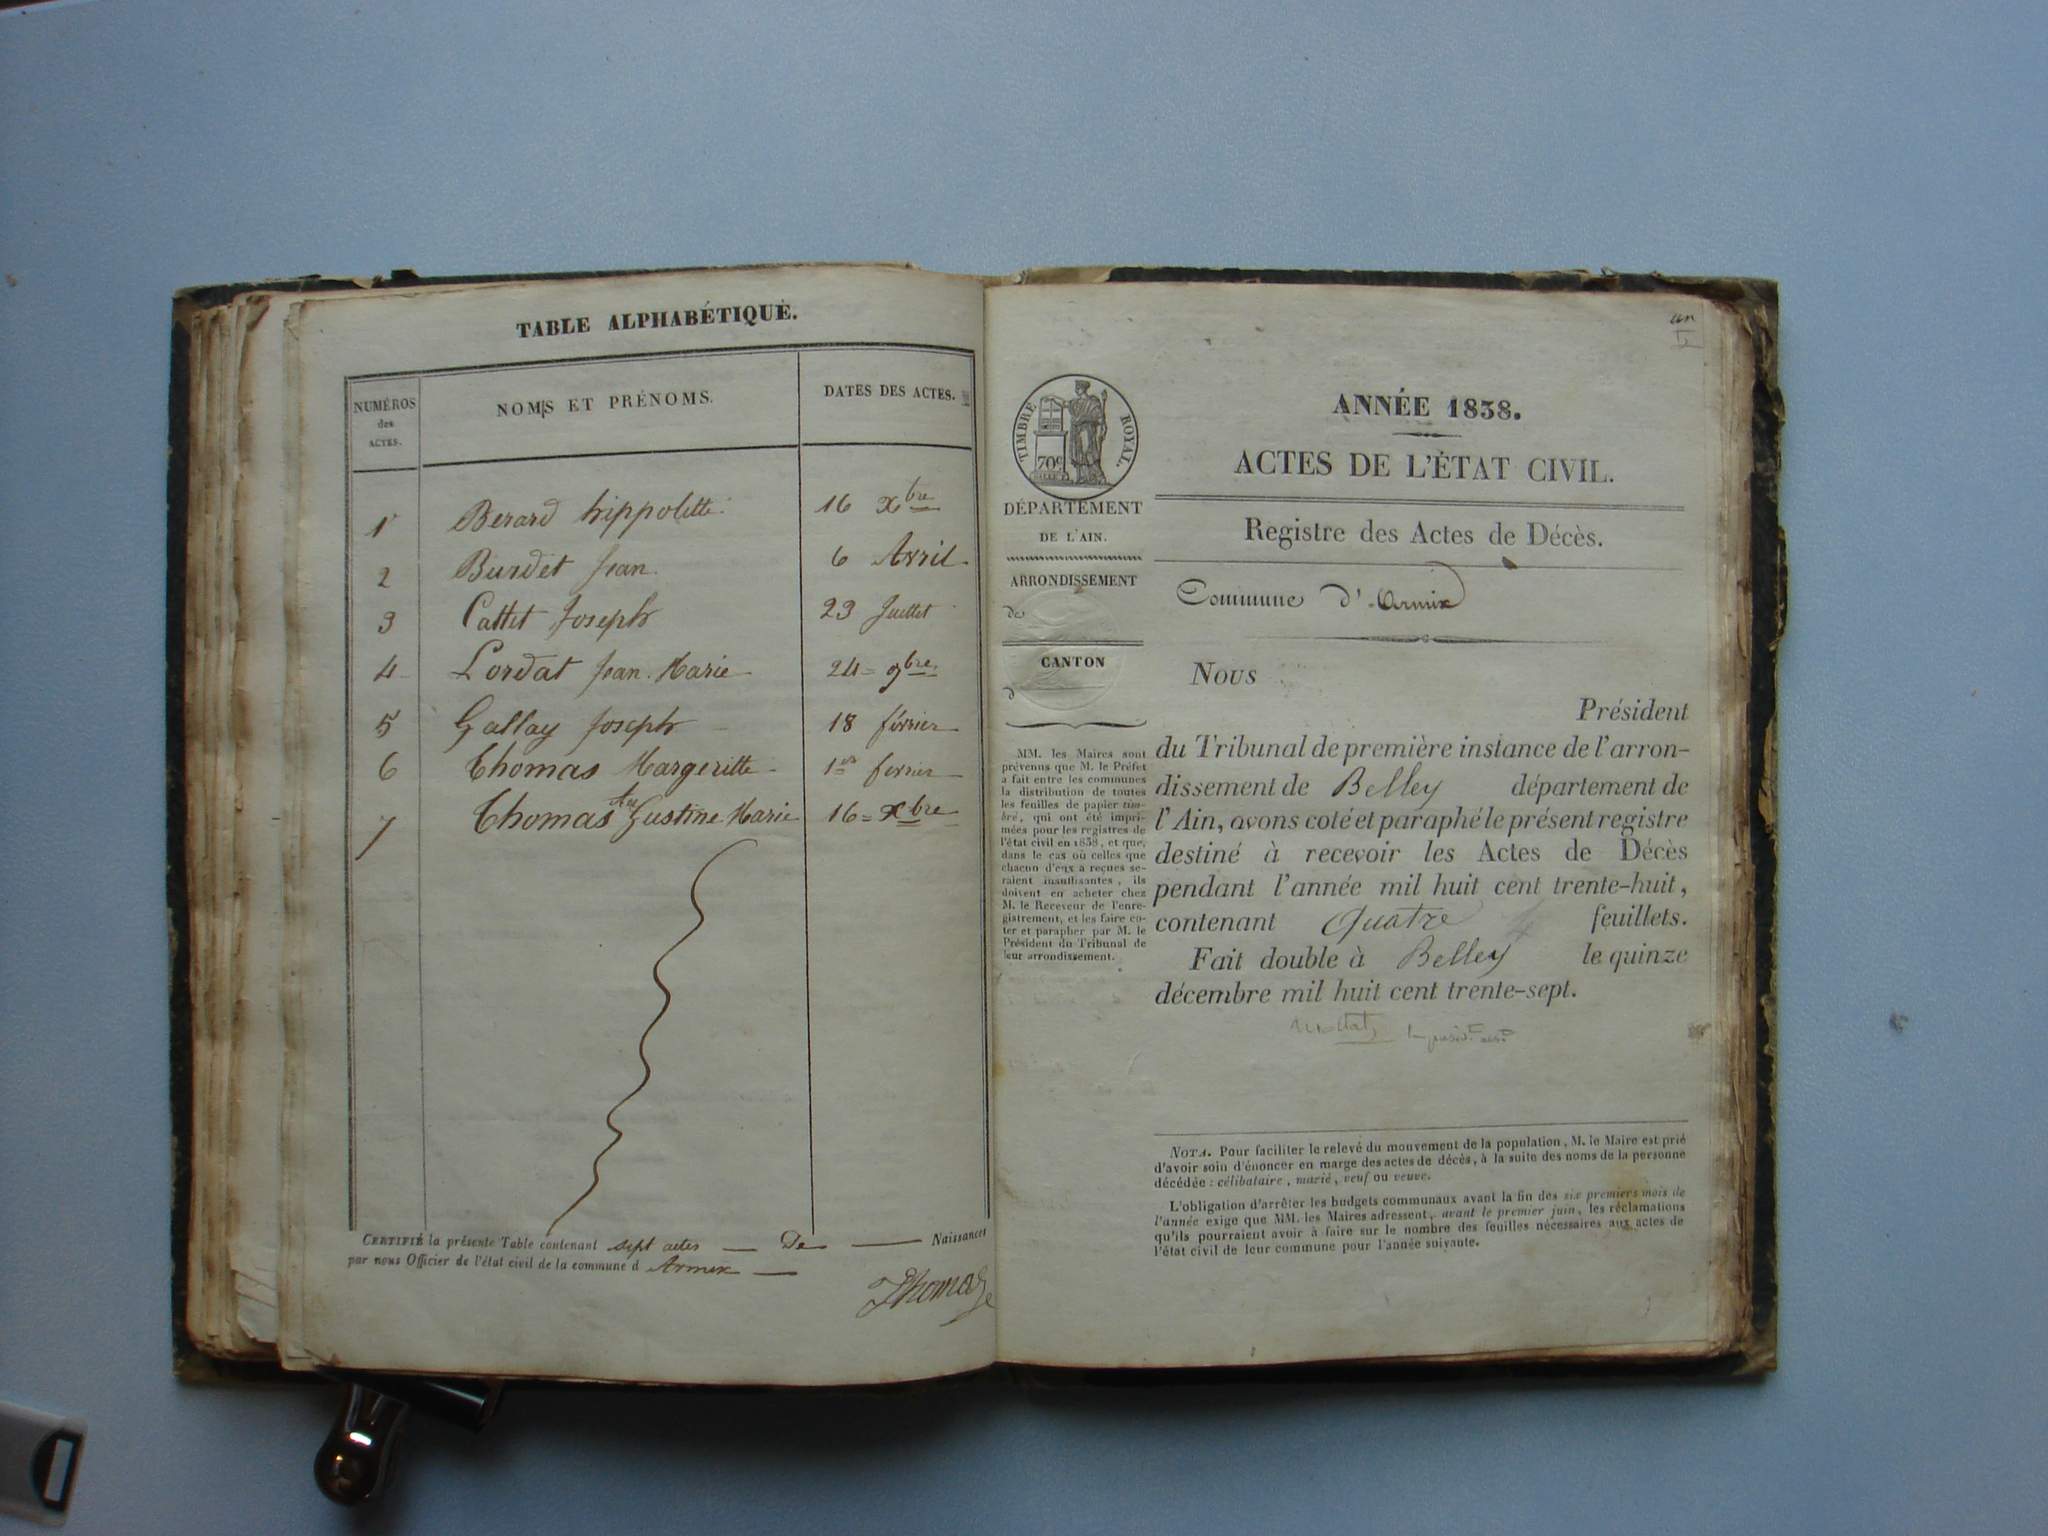 TABLE ALPHABÉTIQUE.
NUMÉROS des ACTES.
NOMS ET PRÉNOMS.
DATES DES ACTES.
1 Berard hippolitte 16 Xbre
2 Burdet Jean 6 Avril
3 Cattet Joseph 23 Juillet
4 Lordat Jean Marie 24 = 9bre
5 Gallay Joseph 18 février
6 Thomas Margeritte 1er fevrier
7 Thomas Gustine Marie 16 = Xbre
CERTIFIÉ la présente Table contenant sept actes — De — Naissances
par nous Officier de l'état civil de la commune d Armix —
Thomas
un
TIMBRE ROYAL.
70c
DÉPARTEMENT
DE L'AIN.
ARRONDISSEMENT
de
CANTON
d
MM. les Maires sont
prévenus que M. le Préfet
a fait entre les communes
la distribution de toutes
les feuilles de papier tim-
bré, qui ont été impri-
mées pour les registres de
l'état civil en 1838, et que,
dans le cas où celles que
chacun d'eux a reçues se-
raient insuffisantes, ils
doivent en acheter chez
M. le Receveur de l'enre-
gistrement, et les faire co-
ter et parapher par M. le
Président du Tribunal de
leur arrondissement.
ANNÉE 1838.
ACTES DE L'ÉTAT CIVIL.
Registre des Actes de Décès.
Commune d'Armix
Nous
Président
du Tribunal de première instance de l'arron-
dissement de Belley département de
l'Ain, avons coté et paraphé le présent registre
destiné à recevoir les Actes de Décès
pendant l'année mil huit cent trente-huit,
contenant Quatre 4 feuillets.
Fait double à Belley le quinze
décembre mil huit cent trente-sept.
NOTA. Pour faciliter le relevé du mouvement de la population, M. le Maire est prié
d'avoir soin d'énoncer en marge des actes de décès, à la suite des noms de la personne
décédée : célibataire, marié, veuf ou veuve.
L'obligation d'arrêter les budgets communaux avant la fin des six premiers mois de
l'année exige que MM. les Maires adressent, avant le premier juin, les réclamations
qu'ils pourraient avoir à faire sur le nombre des feuilles nécessaires aux actes de
l'état civil de leur commune pour l'année suivante.